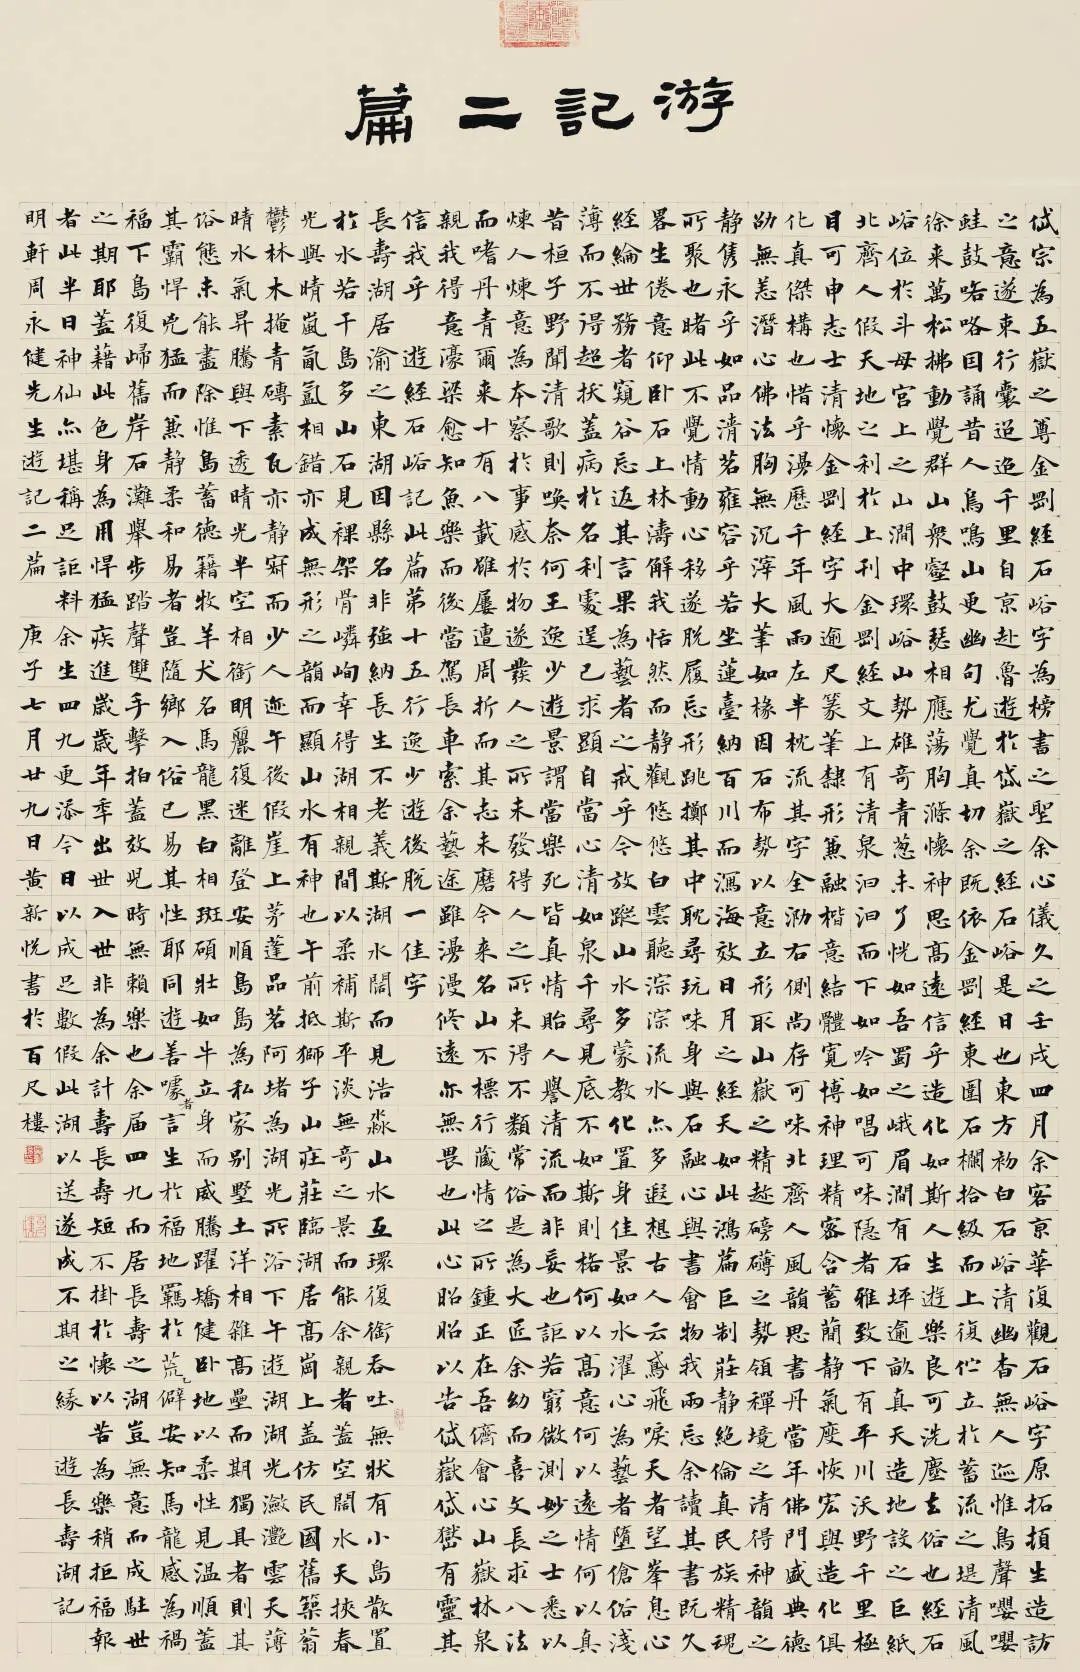 游記二篇
岱宗為五嶽之尊金剛經石峪字為榜書之聖余心儀久之壬戌四月余客京華復觀石峪字原拓頓生造訪
之意遂東行囊迢迢千里自京赴魯遊於岱嶽之經石峪是日也東方初白石峪清幽杳無人迹惟鳥聲嚶嚶
鮭鼓咯咯因誦昔人鳥鳴山更幽句尤覺真切余既依金剛經東圍石欄拾級而上復佇立於蓄流之堤清風
徐來萬松拂動覺群山衆壑鼓瑟相應蕩胸滌懷神思高遠信乎造化如斯人生遊樂良可洗塵去俗也經石
峪位於斗母宮上之山澗中環峪山勢雄奇青葱未了恍如吾蜀之峨眉澗有石坪逾畝真天造地設之巨紙
北齊人假天地之利於上刊金剛經文上有清泉汩汩而下如吟如唱可味隱者雅致下有平川沃野千里極
目可申志士清懷金剛經字大逾尺篆筆隸形兼融楷意結體寬博神理精密含蓄簡靜氣度恢宏與造化俱
化真傑構也惜乎漫歷千年風雨左半枕流其字全泐右側尚存可味北齊人風韻思書丹當年佛門盛典德
劭無恙潛心佛法胸無沉滓大筆如椽因石布勢以意立形取山嶽之精趂磅礴之勢領禪境之清得神韻之
靜雋永乎如品清茗雍容乎若坐蓮臺納百川而瀉海效日月之經天如此鴻篇巨制莊靜絕倫真民族精魂
所聚也睹此不覺情動心移遂脫履忘形跳擲其中耽尋玩味身與石融心與書會物我兩忘余讀其書既久
畧生倦意仰卧石上林濤解我恬然而靜觀悠悠白雲聽淙淙流水亦多遐想古人云鳶飛唳天者望峯息心
經綸世務者窺谷忘返其言果為藝者之戒乎今放蹤山水多蒙教化置身佳景如水濯心為藝者墮傖俗淺
薄而不得超狀蓋病於名利逞己求顯自當心清如泉千尋見底不如斯則格何以高意何以遠情何以真
昔桓子野聞清歌則喚奈何王逸少遊景謂當樂死皆真情貽人譽清流而非妄也詎若窮微測妙之士悉以
煉人煉意為本察於事感於物遂發人之所未發得人之所未得不類常俗是為大匠余幼而喜文長求八法
而嗜丹青爾來十有八載雖屢遭周折而其志未磨今來名山不標行藏情之所鍾正在吾儕會心山嶽林泉
親我得意濠梁愈知魚樂而後當駕長車索余藝途雖漫漫修遠亦無畏也此心昭昭以告岱嶽岱嶽有靈其
信我乎 遊經石峪記此篇弟十五行逸少遊後脫一佳字
長壽湖居渝之東湖因縣名非強納長生不老義斯湖水闊而見浩淼山水互環復銜吞吐無狀有小島散置
於水若干島多山石見裸架骨嶙峋幸得湖相親間以柔補斯平淡無奇之景而能余親者蓋空闊水天挾春
光與晴嵐氤氳相錯亦成無形之韻而顯山水有神也午前抵獅子山庄莊臨湖居高崗上蓋仿民國舊築蓊
鬱林木掩青磚素瓦亦靜而少人迹午後假崖上茅蓬品茗阿堵為湖光所浴下午遊湖湖光瀲灔雲天薄
晴水氣昇騰與下透晴光半空相銜明麗復迷離登安順島島為私家別墅土洋相雜高壘而期獨具者則其
俗態未能盡除惟島蓄德籍牧羊犬名馬龍黑白相斑碩壯如牛立身而威騰躍矯健卧地以柔性見温順蓋
其霸悍兇猛而兼靜柔和易者豈隨鄉入俗已易其性耶同遊善噱者言生於福地羈於荒僻安知馬龍感為禍
福下島復歸舊岸石灘舉步踏聲雙手擊拍蓋效兒時無賴樂也余届四九而居長壽之湖豈無意而成駐世
之期耶蓋藉此色身為用悍猛疾進歲歲年季出世入世非為余計壽長壽短不掛於懷以苦為樂稍拒福報
者此半日神仙亦堪稱足詎料余生四九更添今日以成足數假此湖以送遂成不期之緣 遊長壽湖記
明軒周永健先生遊記二篇 庚子七月廿九日黃新悅書於百尺樓